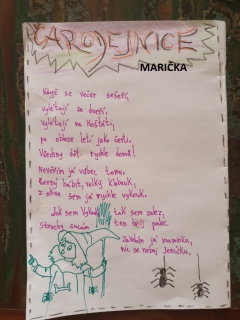 ČARODEJNICE
MARIČKA
Když se večer sešeří,
vylétají ze dveří.
vylétají na Košťáti,
po obloze letí jako čerti.
Všechny dát rychle domů!
Nevěřím já vůbec tomu.
Černý hábit, velký klobouk,
z okna sem já rychle vykouk.
Jak sem vykouk, tak sem zalez,
strachy cucám ten palec.
Zavolám já maminku,
nic se neboj Jeníčku.